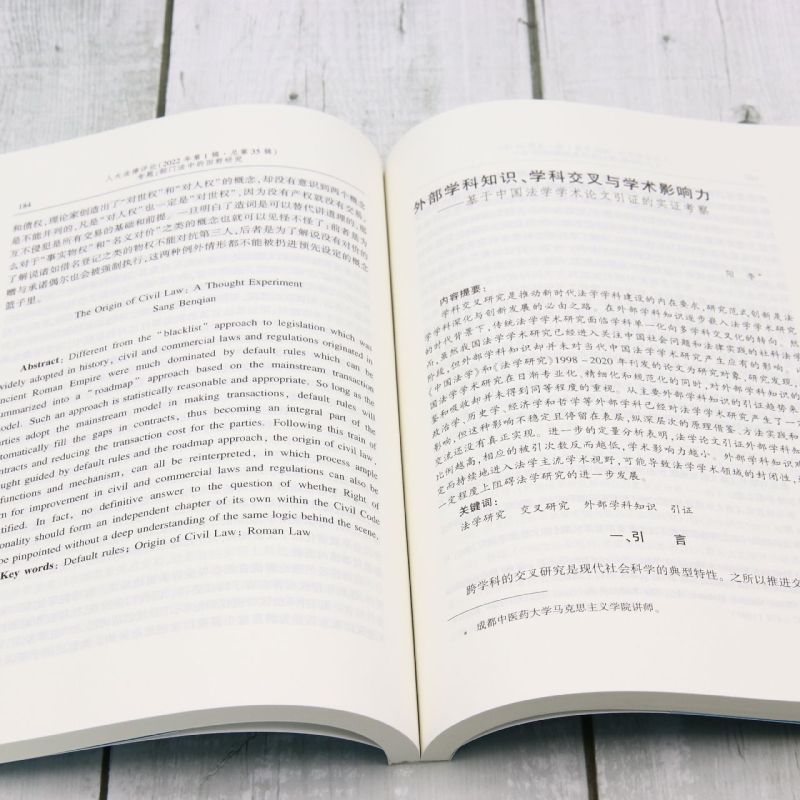 人大法律评论(2022年第1辑·总第35辑)
184
专题:部门法中的田野研究
和债权,理论家创造出了“对世权”和“对人权”的概念,却没有意识到两个概念
是不能并列的,凡是“对人权”也一定是“对世权”,因为没有产权就没有交易,
互不侵犯是所有交易的基础和前提。一旦明白了造词是可以替代讲道理的,那
么对于“事实物权”和“名义对价”之类的概念也就可以见怪不怪了;前者是为
了解说诸如借名登记之类的物权不能对抗第三人,后者是为了解说没有对价的
赠与承诺偶尔也会被强制执行,这两种例外情形都不能被扔进预先设定的概念
篮子里。
The Origin of Civil Law: A Thought Experiment
Sang Benqian
Abstract: Different from the “blacklist” approach to legislation which was
widely adopted in history, civil and commercial laws and regulations originated in
ncient Roman Empire were much dominated by default rules which can be
ummarized into a “roadmap” approach based on the mainstream transaction
odel. Such an approach is statistically reasonable and appropriate. So long as the
arties adopt the mainstream model in making transactions, default rules will
tomatically fill the gaps in contracts, thus becoming an integral part of the
ntracts and reducing the transaction cost for the parties. Following this train of
ought guided by default rules and the roadmap approach, the origin of civil law,
functions and mechanism, can all be reinterpreted, in which process ample
m for improvement in civil and commercial laws and regulations can also be
tified. In fact, no definitive answer to the question of whether Right of
onality should form an independent chapter of its own within the Civil Code
be pinpointed without a deep understanding of the same logic behind the scene.
Key words: Default rules; Origin of Civil Law; Roman Law
外部学科知识、学科交叉与学术影响力
——基于中国法学学术论文引证的实证考察
阳 李*
内容提要:
学科交叉研究是推动新时代法学学科建设的内在要求,研究范式创新是法
学学科深化与创新发展的必由之路。在外部学科知识逐步嵌入法学学术研究
的时代背景下,传统法学学术研究面临学科单一化向多学科交叉化的转向。然
而,虽然我国法学学术研究已经进入关注中国社会问题和法律实践的社科法学
阶段,但外部学科知识却并未对当代中国法学学术研究产生应有的影响。以
《中国法学》和《法学研究》1998-2020年刊发的论文为研究对象,研究发现,
国法学学术研究在日渐专业化、精细化和规范化的同时,对外部学科知识的
鉴和吸收却并未得到同等程度的重视。从主要外部学科知识的引证趋势来
政治学、历史学、经济学和哲学等外部学科已经对法学学术研究产生了一
影响,但这种影响不稳定且停留在表层,纵深层次的原理借鉴、方法实践和
交流还没有真正实现。进一步的定量分析表明,法学论文引证外部学科知
比例越高,相应的被引次数反而越低,学术影响力越小。外部学科知识
定向持续地进入法学主流学术视野,可能导致法学学术领域的封闭性,
一定程度上阻碍法学研究的进一步发展。
关键词:
法学研究 交叉研究 外部学科知识 引证
一、引 言
跨学科的交叉研究是现代社会科学的典型特性。之所以推进交
* 成都中医药大学马克思主义学院讲师。